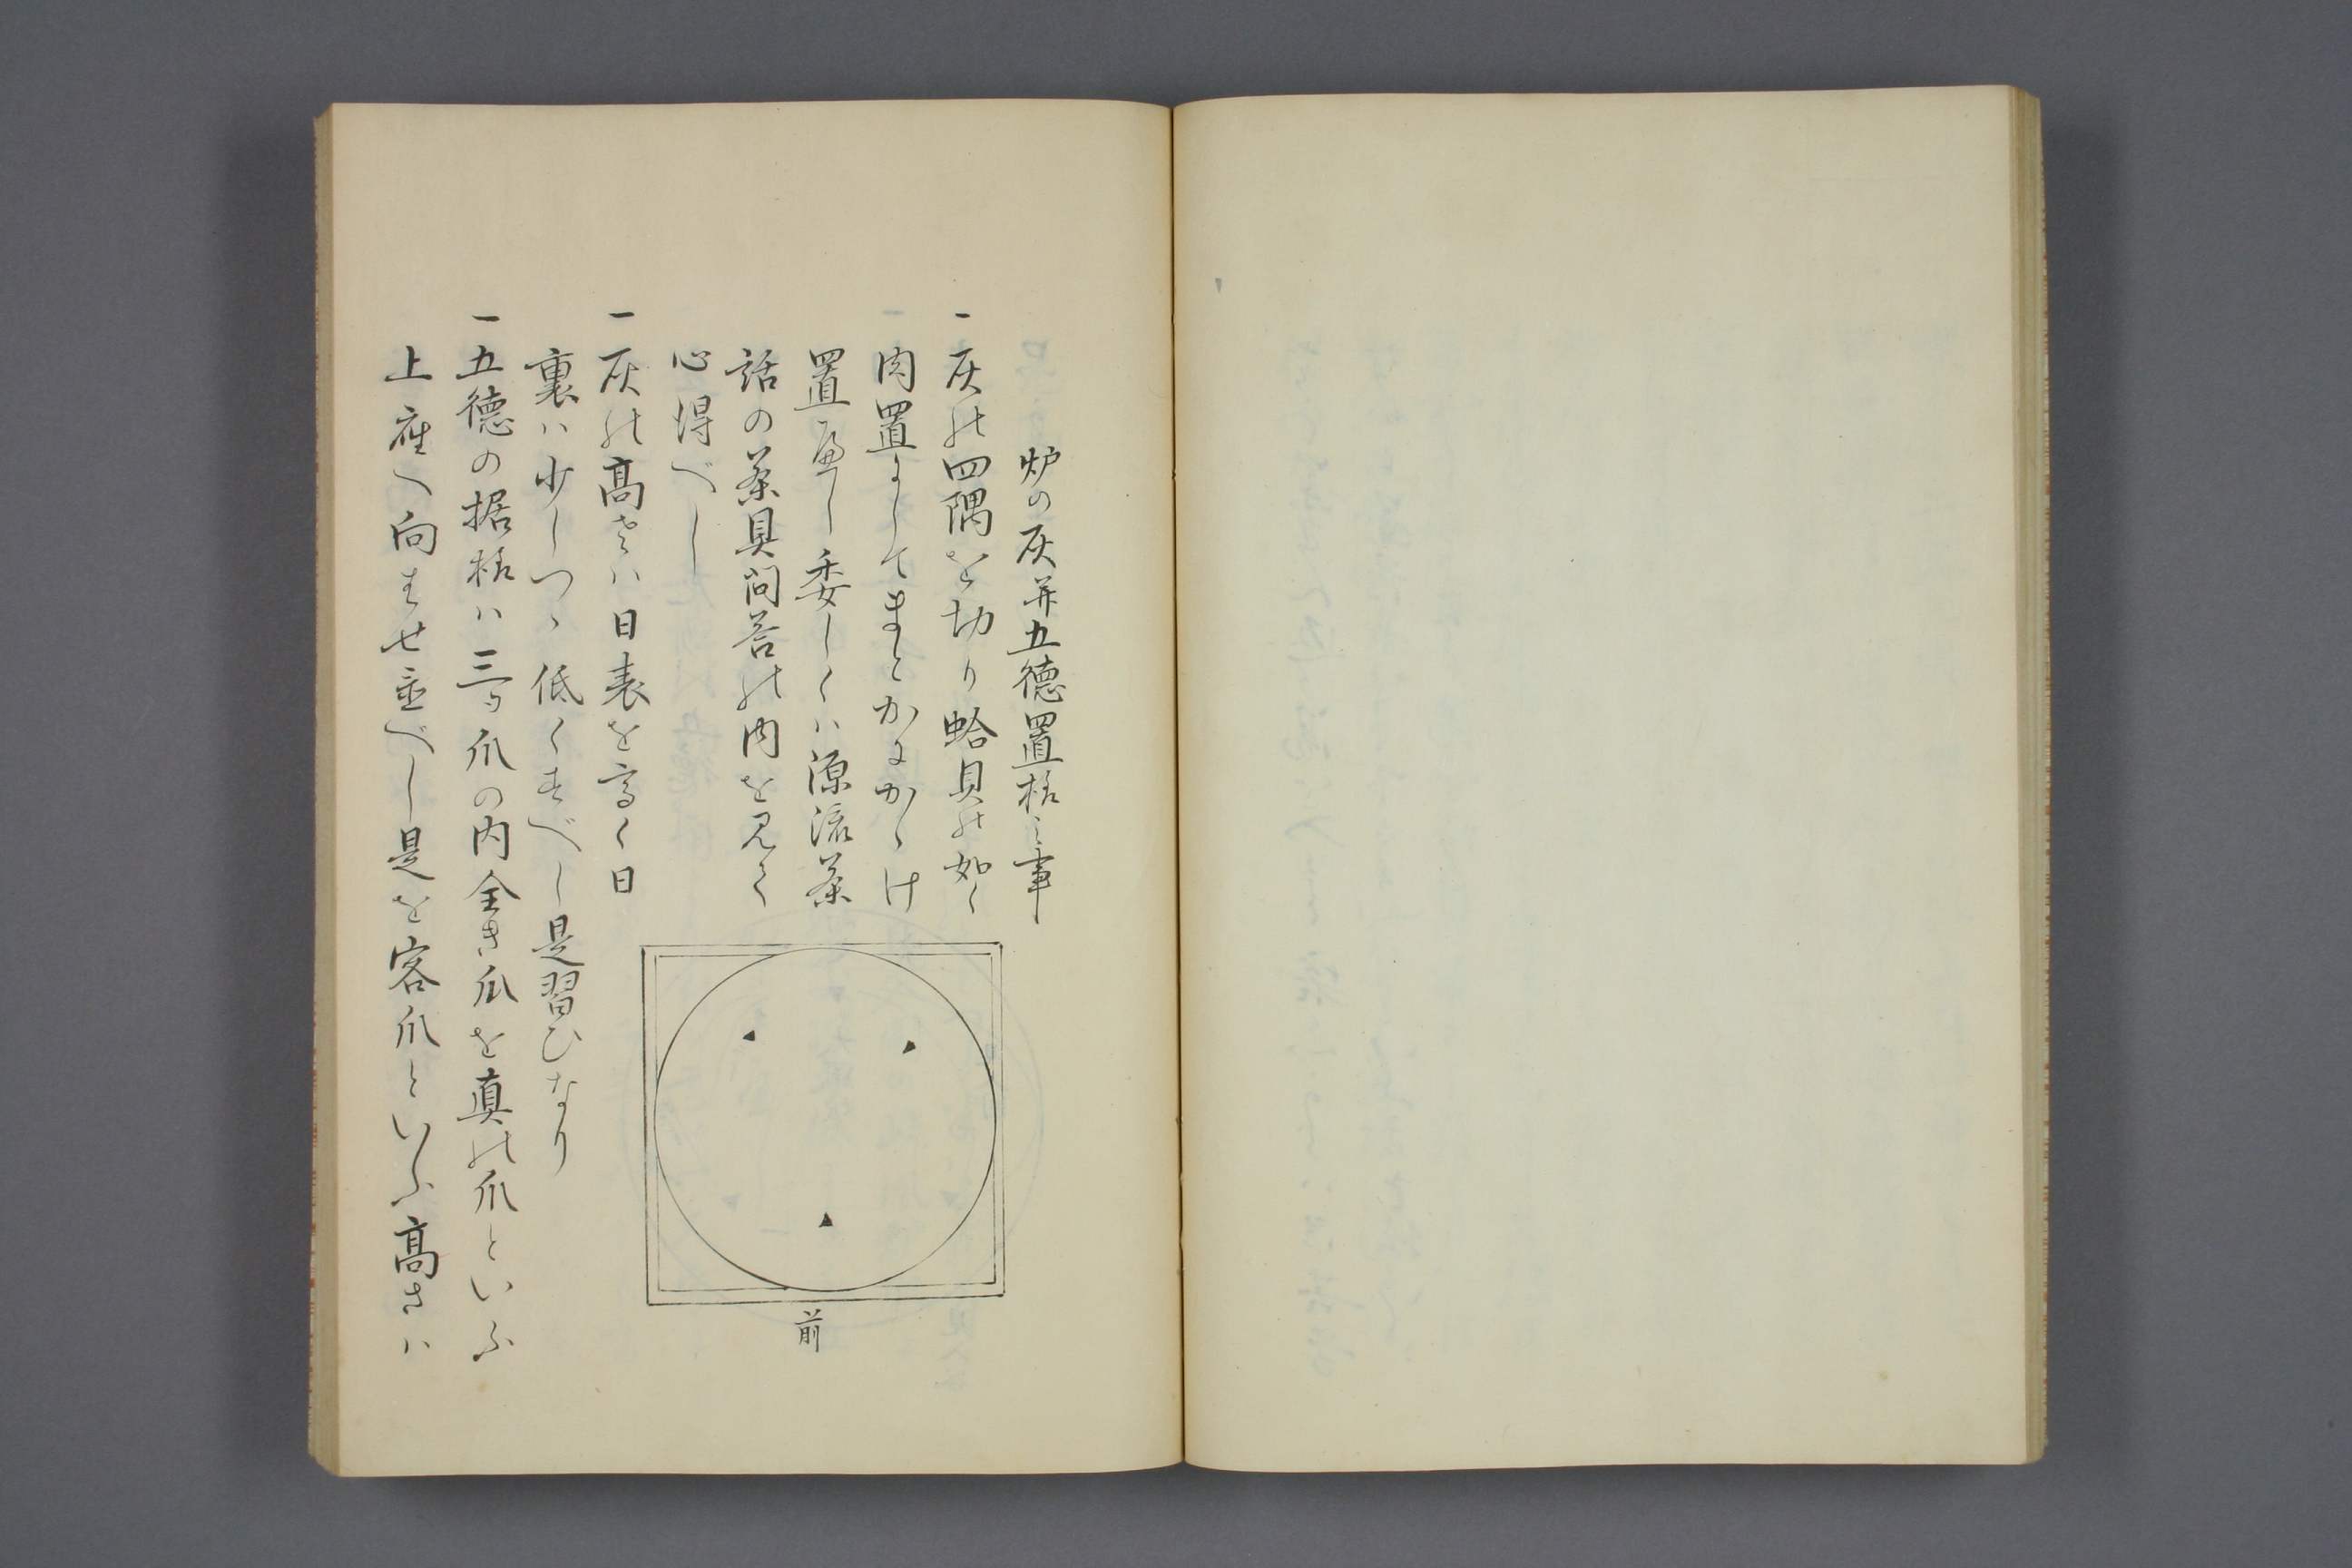 炉の灰并五徳置様之事
一灰の四隅を切り蛤貝の如く
肉置にしてまとかにかゝけ
置へし委しくハ源流茶
話の茶具問答の内を見て
心得べし
一灰の高さハ日表を高く日
裏ハ少しつゝ低くすべし是習ひなり
一五徳の据様ハ三ツ爪の内全き爪を真の爪といふ
上座へ向ませ並べし是を客爪といふ高さハ
前